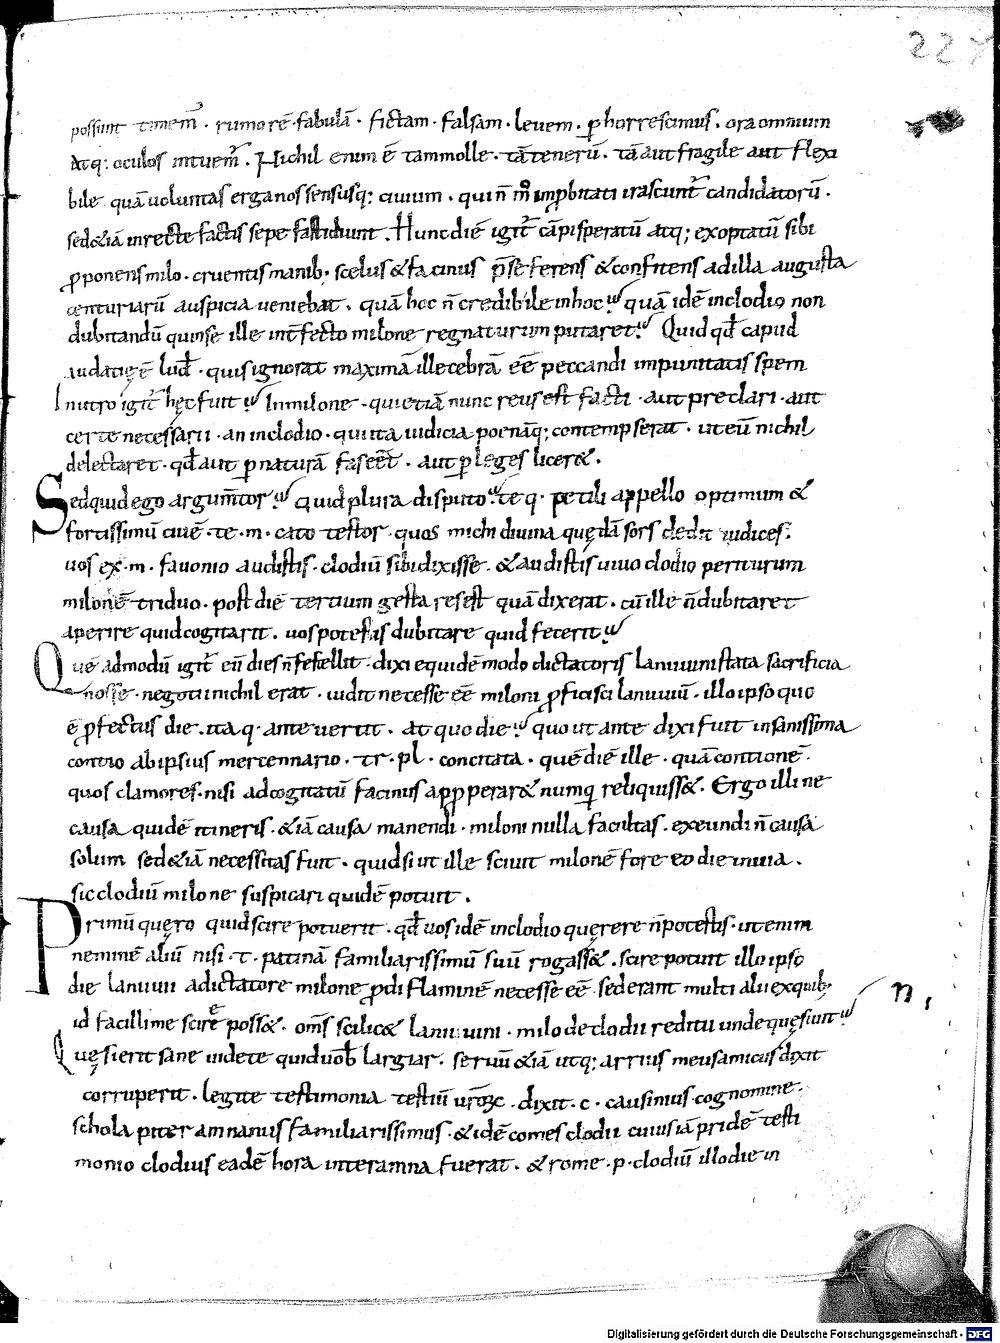 227
possunt timem̄. rumorē. fabulā. fictam. falsam. levem. ꝑhorrescimus. ora omnium
Atq; oculos intuem̄. Nichil enim ē tam molle. tā tenerū. tā aut fragile aut flexi
bile quā uoluntas erga nos sensusq; ciuium. qui n̄ m̊ improbitati irascunt̄ candidatorū.
sed&iā inrecte factis sepe fastidiunt. Hunc diē igit̄ cāpi speratū atq; exoptatū sibi
ꝓponens milo. cruentis manib; scelus & facinus p̄se ferens & confitens ad illa augusta
centuriarū auspicia ueniebat. quā hoc n̄ credibile inhoc? quā idē inclodio non
dubitandū quin se ille int̄fecto milone regnaturum putaret? Quid qđ capud
audatię ē Iuđ. quis ignorat maximā illecebrā eē peccandi impunitatis spem
Inutro igit̄ hęc fuit? Inmilone. qui etiā nunc reus est facti. aut preclari. aut
certe necessarii. an inclodio. qui ita iudicia poenāq; contempserat. ut eū nichil
delectaret. qđ aut ꝑ naturā fas eēt. aut ꝑ leges licer&.
Sed quid ego argum̄tor? Quid plura disputo? te q. petili appello optimum &
fortissimū ciuē. te. m. cato testor. quos michi diuina quędā sors dedit iudices.
uos ex. m. fauonio audistis. clodiū sibi dixisse. & audistis uiuo clodio periturum
milonē triduo. post diē tertium gesta res est quā dixerat. cū ille n̄ dubitaret
aperire quid cogitarit. uos potestis dubitare quid fecerit?
Quē admodū igit̄ eū dies n̄ fefellit. dixi equidē modo dictatoris lanuuini stata sacrificia
nosse. negotii nichil erat. uidit necesse eē miloni ꝓficisci lanuuiū. illo ipso quo
ē ꝓfectus die. ita q. ante uertit. At quo die? quo ut ante dixi fuit insanissima
contio ab ipsius mercennario. tr. pl. concitata. quē diē ille. quā contionē.
quos clamores. nisi ad cogitatū facinus apꝓperar& numq̄ reliquiss&. Ergo illi ne
causa quidē itineris. &iā causa manendi. miloni nulla facultas. exeundi n̄ causa
solum sed&iā necessitas fuit. quid si ut ille sciuit milonē fore eo die inuia.
sic clodiū milo ne suspicari quidē potuit.
Primū quęro quid scire potuerit. qđ uos idē inclodio quęrere n̄ potestis. ut enim
neminē aliū nisi. t. patinā familiarissimū suū rogass&. scire potuit illo ipso
die lanuuii a dictatore milone ꝓdi flaminē necesse eē. sed erant multi alii ex quib;
n,
id facillime scirē poss&. om̄s scilic& lanuuini. milo de clodii reditu unde quęsiuit?
Quęsierit sane uidete quid uob̄ largiar. seruū &iā utq; arrius meus amicus dixit
corruperit. legite testimonia testiū ur̄oꝝ. dixit. c. causinius cognomine.
schola piter amnanus familiarissimus. & idē comes clodii cuius iā pridē testi
monio clodius eadē hora interamna fuerat. & rome. p. clodiū illo die in
Digitalisierung gefördert durch die Deutsche Forschungsgemeinschaft - DFG